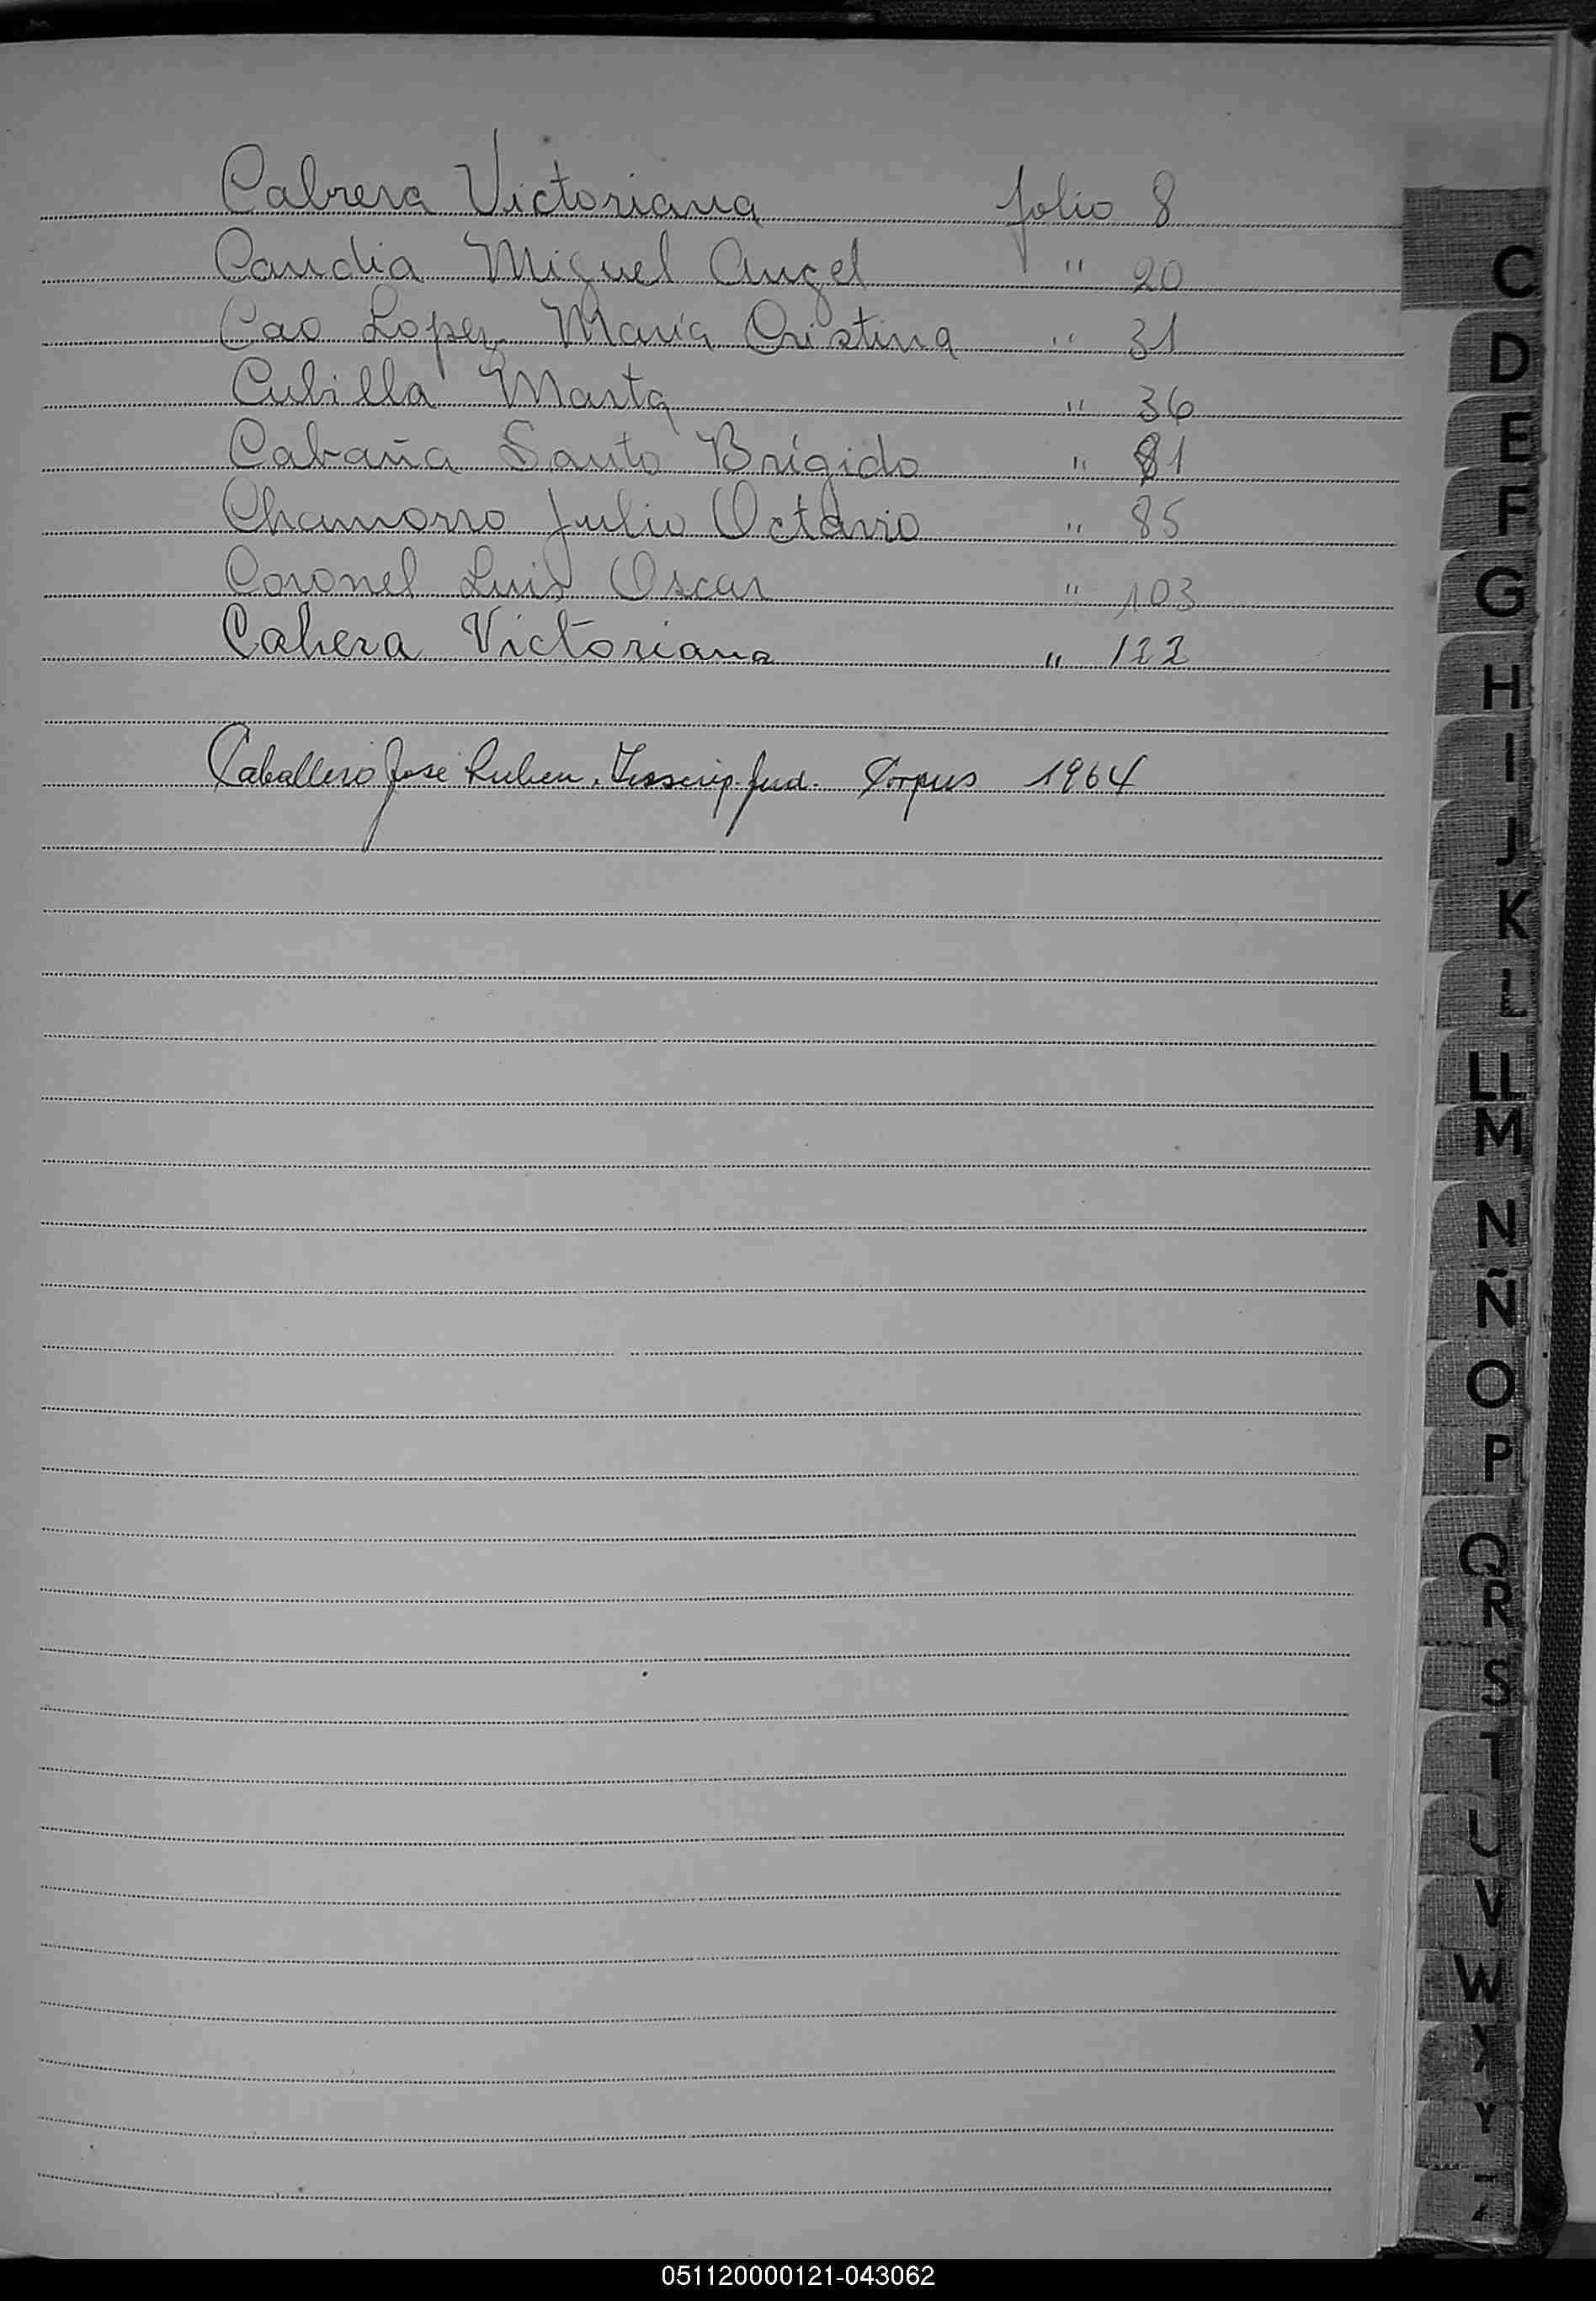 Cabrera Victoriana folio 8
Candia Miguel Angel " 20
Cao Lopez María Cristina " 31
Cubilla Marta " 36
Cabaña Santo Brígido " 81
Chamorro Julio Octavio " 85
Coronel Luis Oscar " 103
Cabera Victoriana " 122
Caballero Jose Ruben. Inscrip. Jud. Corpus 1964
C
D
E
F
G
H
I
J
K
L
LL
M
N
Ñ
O
P
Q
R
S
T
U
V
W
X
Y
Z
051120000121-043062